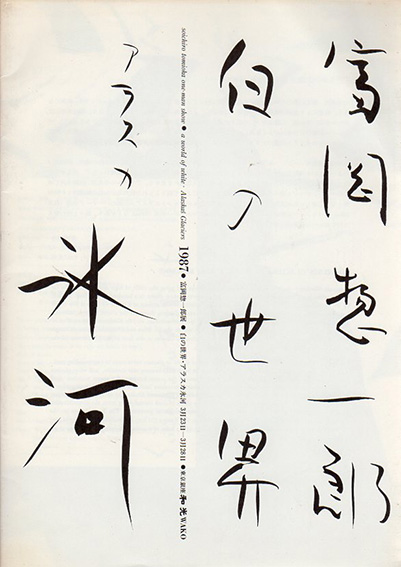 富岡惣一郎
白の世界
soichiro tomioka one man show ● a world of white・Alaskas Glaciers 1987 ● 富岡惣一郎展 ● 白の世界・アラスカ氷河 3月23日—3月28日 ● 東京銀座 和光 WAKO
アラスカ
氷河